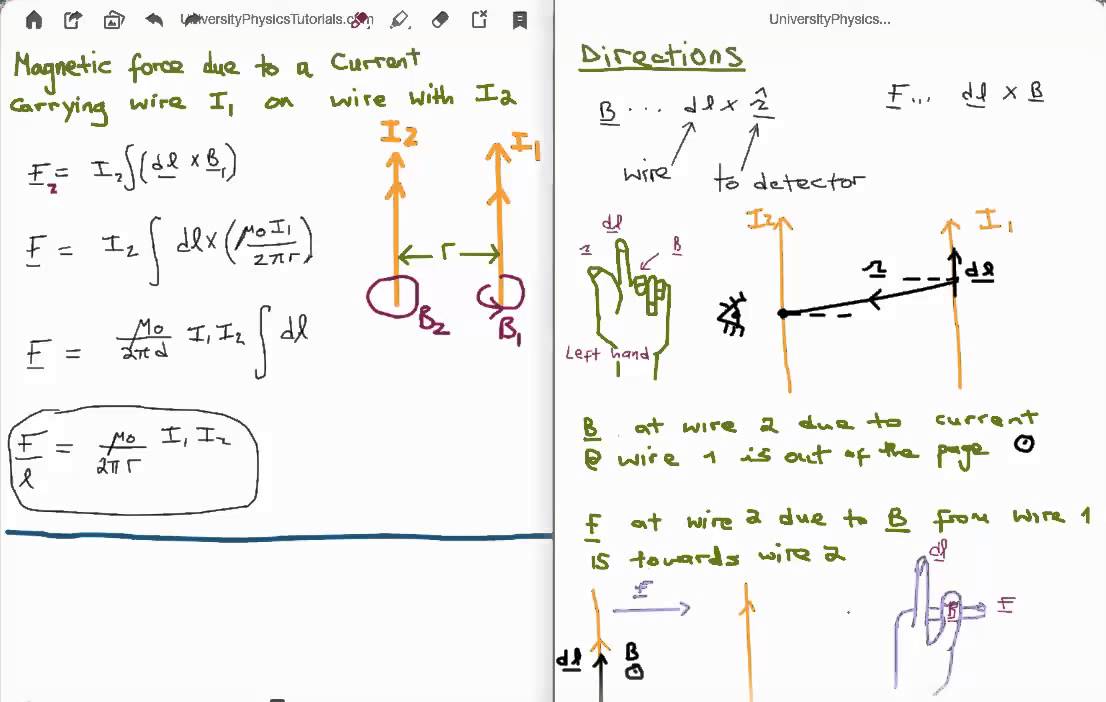 UniversityPhysicsTutorials.com
Magnetic force due to a Current
Carrying wire I₁ on wire with I₂
F₂ = I₂∫(dl × B₁)
F = I₂ ∫ dl×(μ₀I₁/2πr)
F = μ₀/2πd I₁I₂ ∫ dl
F/l = μ₀/2πr I₁I₂
I₂
I₁
r
B₂
B₁
UniversityPhysics...
Directions
B ... dl × r̂
F... dl × B
wire
to detector
dl
r
B
Left hand
I₂
I₁
r
dl
B at wire 2 due to current
@ wire 1 is out of the page ⊙
F at wire 2 due to B from wire 1
is towards wire 2
F
dl
B
⊙
dl
B
F